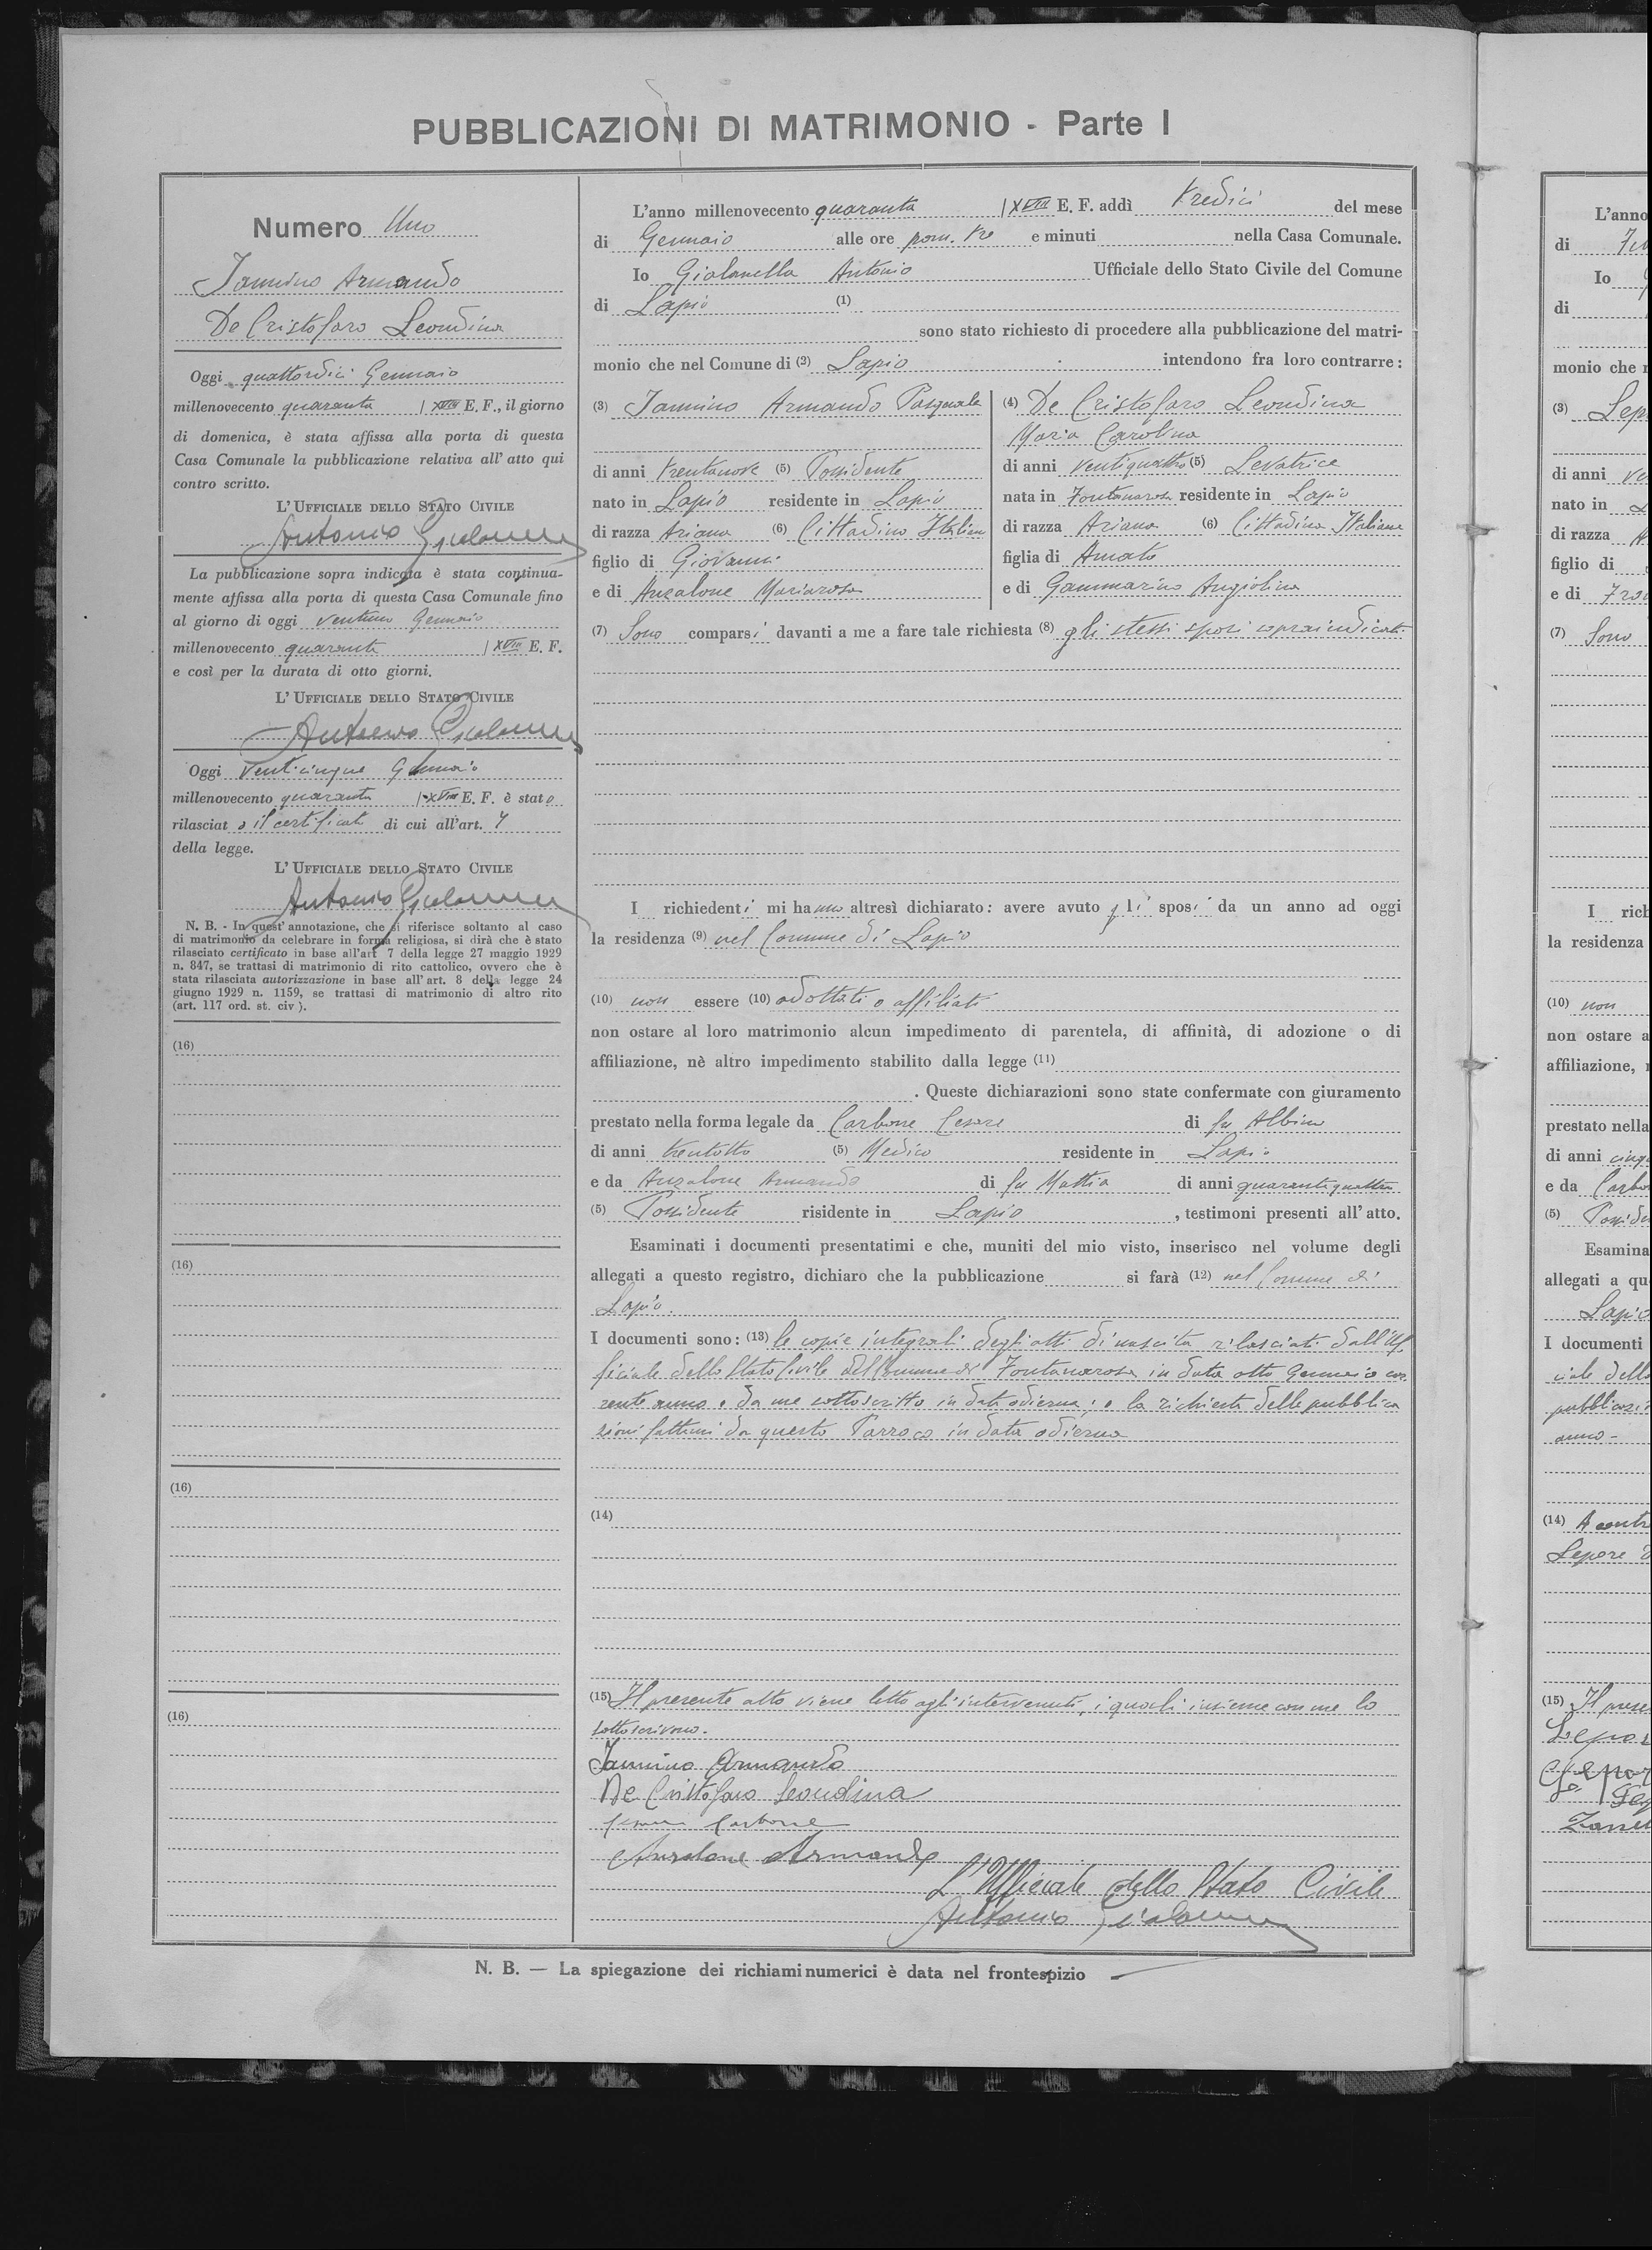 PUBBLICAZIONI DI MATRIMONIO - Parte I
Numero Uno
Iannino Armando
De Cristofaro Leondina
Oggi quattordici Gennaio
millenovecento quaranta / XVIII E. F., il giorno
di domenica, è stata affissa alla porta di questa
Casa Comunale la pubblicazione relativa all' atto qui
contro scritto.
L'UFFICIALE DELLO STATO CIVILE
Antonio
La pubblicazione sopra indicata è stata continua-
mente affissa alla porta di questa Casa Comunale fino
al giorno di oggi ventuno Gennaio
millenovecento quaranta / XVIII E. F.
e così per la durata di otto giorni.
L' UFFICIALE DELLO STATO CIVILE
Antonio
Oggi venticinque Gennaio
millenovecento quaranta / XVIII E. F. è stato
rilasciat o il certificato di cui all'art. 7
della legge.
L' UFFICIALE DELLO STATO CIVILE
Antonio
N. B. - In quest' annotazione, che si riferisce soltanto al caso
di matrimonio da celebrare in forma religiosa, si dirà che è stato
rilasciato certificato in base all'art 7 della legge 27 maggio 1929
n. 847, se trattasi di matrimonio di rito cattolico, ovvero che è
stata rilasciata autorizzazione in base all' art. 8 della legge 24
giugno 1929 n. 1159, se trattasi di matrimonio di altro rito
(art. 117 ord. st. civ.).
(16)
(16)
(16)
(16)
L'anno millenovecento quaranta / XVIII E. F. addì tredici del mese
di Gennaio alle ore pom. tre e minuti nella Casa Comunale.
Io Gialanella Antonio Ufficiale dello Stato Civile del Comune
di Lapio (1)
sono stato richiesto di procedere alla pubblicazione del matri-
monio che nel Comune di (2) Lapio intendono fra loro contrarre:
(3) Iannino Armando Pasquale
di anni trentanove (5) Possidente
nato in Lapio residente in Lapio
di razza Ariana (6) Cittadino Italiano
figlio di Giovanni
e di Anzalone Mariarosa
(4) De Cristofaro Leondina
Maria Carolina
di anni ventiquattro (5) Levatrice
nata in Fontanarosa residente in Lapio
di razza Ariana (6) Cittadina Italiana
figlia di Amato
e di Gammarino Angiolina
(7) Sono comparsi davanti a me a fare tale richiesta (8) gli stessi sposi sopraindicati
I richiedenti mi hanno altresì dichiarato: avere avuto gli sposi da un anno ad oggi
la residenza (9) nel Comune di Lapio
(10) non essere (10) adottati o affiliati
non ostare al loro matrimonio alcun impedimento di parentela, di affinità, di adozione o di
affiliazione, nè altro impedimento stabilito dalla legge (11)
. Queste dichiarazioni sono state confermate con giuramento
prestato nella forma legale da Carbone Cesare di fu Albino
di anni trentotto (5) Medico residente in Lapio
e da Anzalone Armando di fu Mattia di anni quarantaquattro
(5) Possidente risidente in Lapio , testimoni presenti all' atto.
Esaminati i documenti presentatimi e che, muniti del mio visto, inserisco nel volume degli
allegati a questo registro, dichiaro che la pubblicazione si farà (12) nel Comune di
Lapio.
I documenti sono: (13) le copie integrali degli atti di nascita rilasciati dall'Uf
ficiale dello Stato Civile del Comune di Fontanarosa in data otto Gennaio cor
rente anno e da me sottoscritto in data odierna; e la richiesta delle pubblica
zioni fattami da questo Parroco in data odierna
(14)
(15) Il presente atto viene letto agli intervenuti, i quali insieme con me lo
sottoscrivono.
Iannino Armando
De Cristofaro Leondina
Cesare Carbone
Anzalone Armando
L'Ufficiale dello Stato Civile
Antonio Gialanella
N. B. — La spiegazione dei richiami numerici è data nel frontespizio
L'anno
di
Io
di
monio che
(3) Lep
di anni
nato in
di razza
figlio di
e di
(7) Sono
I rich
la residenza
(10) non
non ostare a
affiliazione,
prestato nella
di anni
e da
(5)
Esamina
allegati a qu
I documenti
anno-
(14)
Lepore
(15)